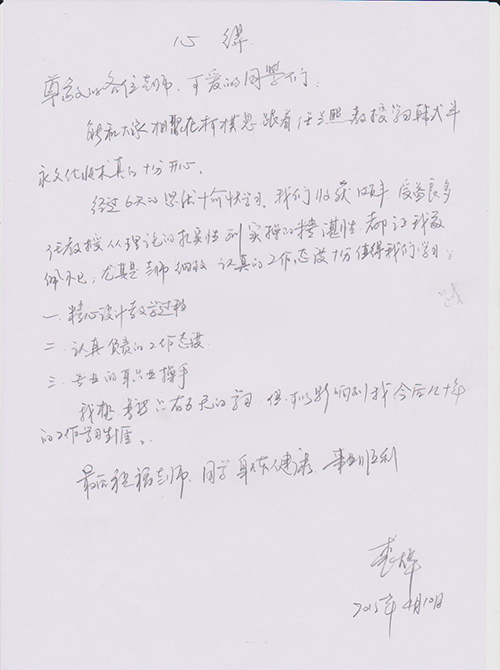 心得
尊敬的各位老师、可爱的同学们:
能和大家相聚在柯模思跟着任兰熙教授学习韩式半
永久化妆术真的十分开心。
经过6天的紧张愉快学习,我们收获颇丰,受益良多
任教授从理论的扎实性到实操的精湛性都让我敬
佩不已,尤其是老师细致、认真的工作态度十分值得我们学习:
一.精心设计教学过程
二.认真负责的工作态度
三.专业的职业操手
我想,虽然只有6天的学习,但可以影响到我今后几十年
的工作学习生涯。
最后祝福老师、同学身体健康、事业顺利
2015年4月10日